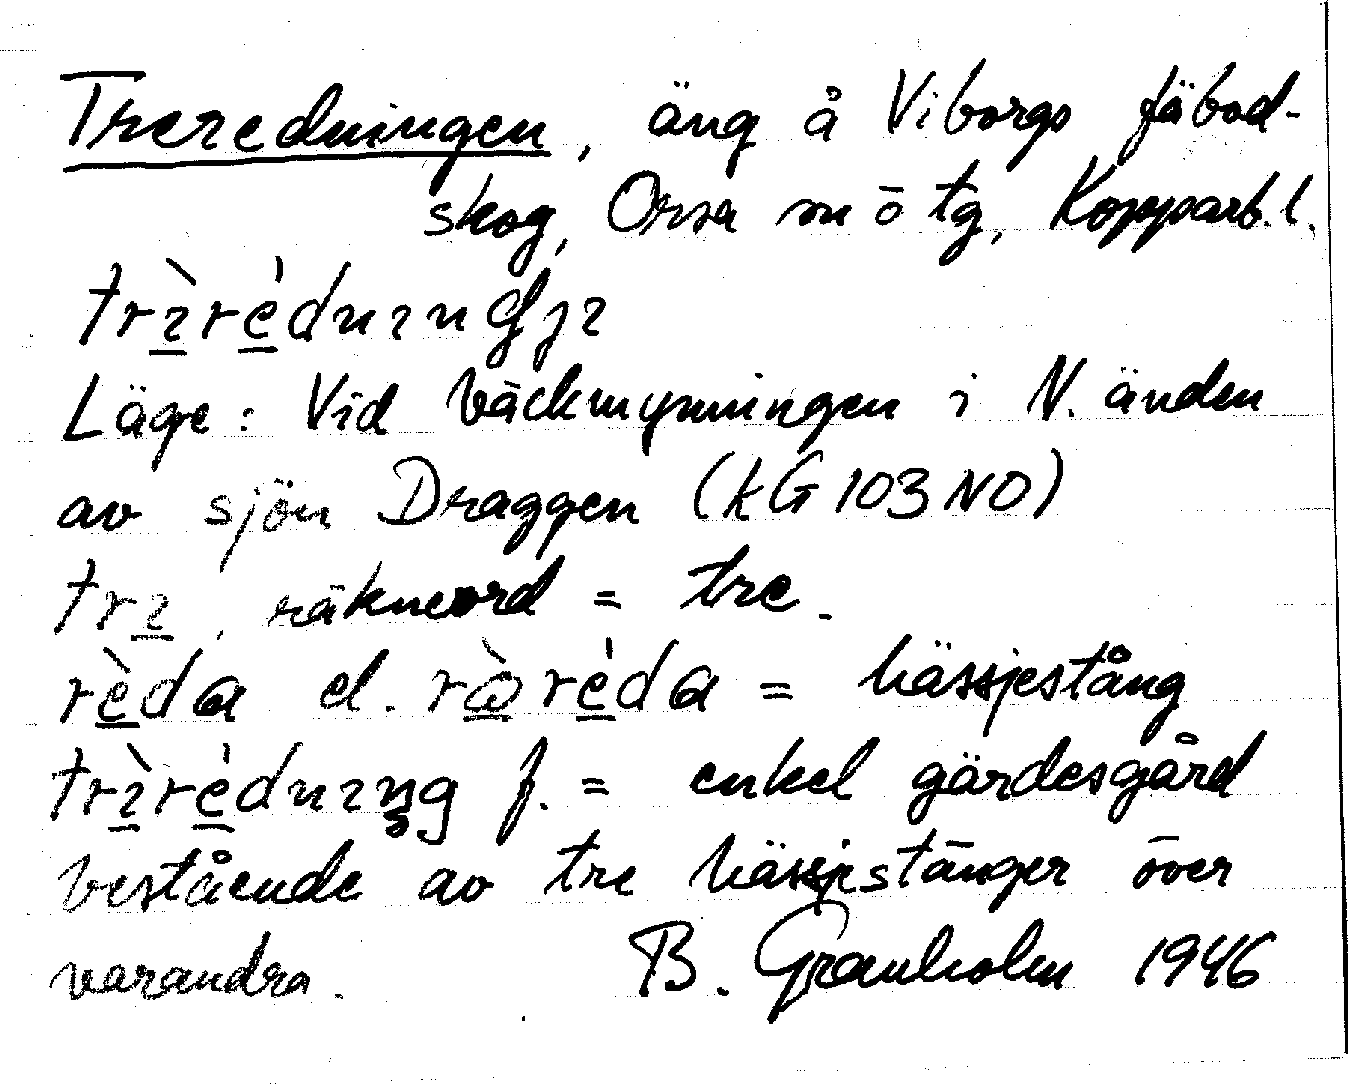 Treredningen, äng å Viborgs fäbod-
skog, Orsa sn ō tg, Kopparb. l.
trı̱̀ré̱dnıngjı
Läge: Vid bäckmynningen i N. änden
av sjön Draggen (kG 103 NO)
trı̱, räkneord = tre.
rè̱da el. rò̱ré̱da = hässjestång
trı̱̀ré̱dnıng f. = enkel gärdesgård
bestående av tre hässjestänger över
varandra. B. Granholm 1946